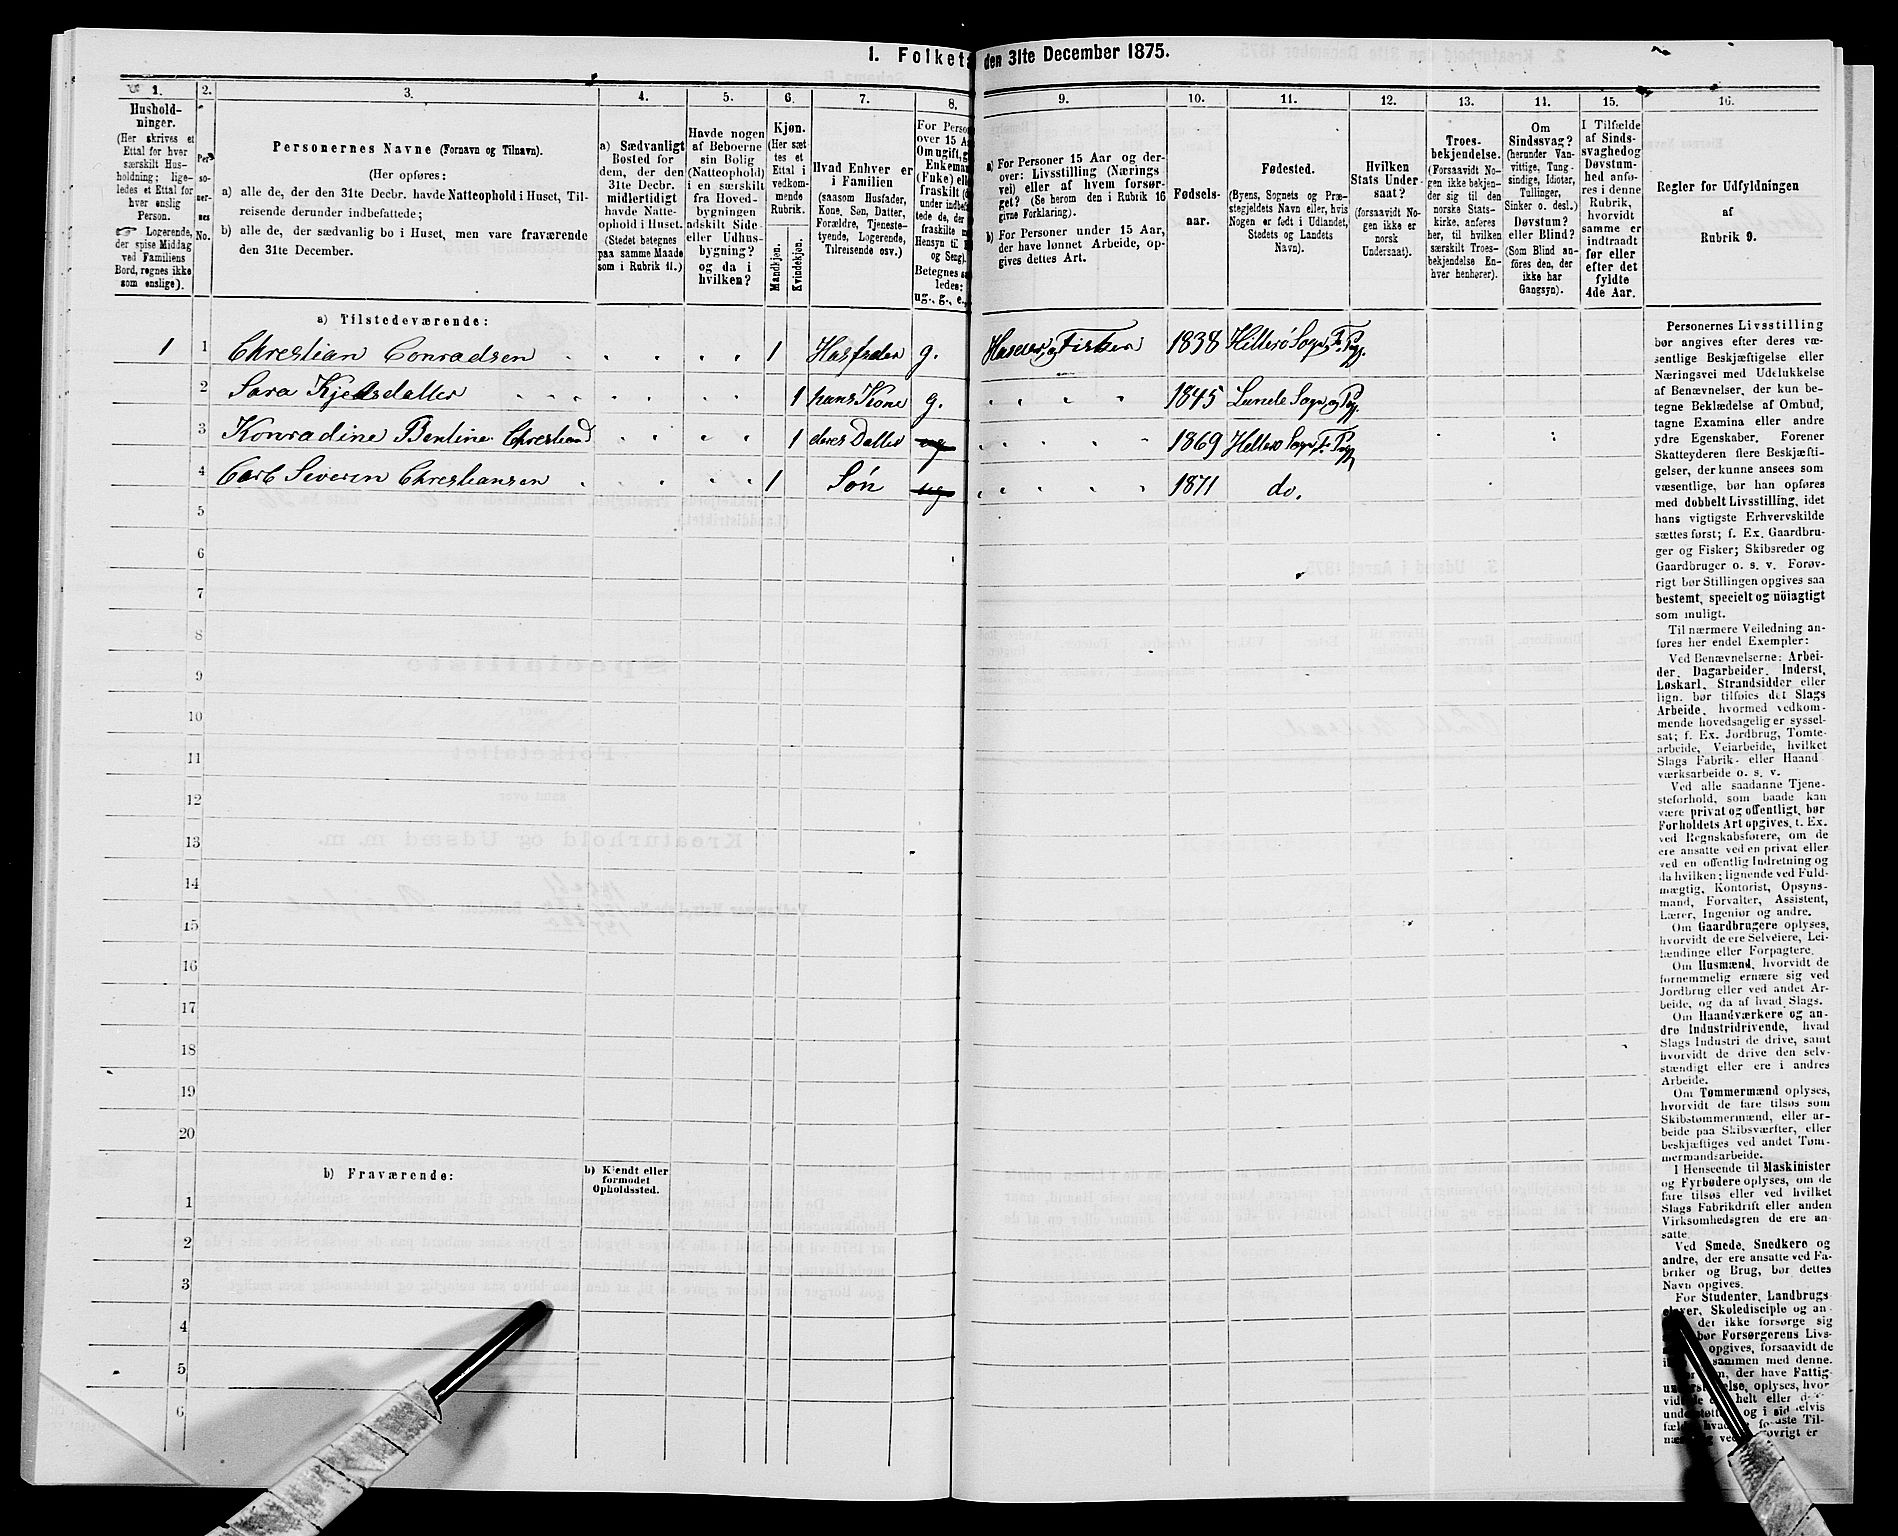 1. Folketa den 31te December 1875.
1. 2. 3. 4. 5. 6. 7. 8. 9. 10. 11. 12. 13. 14. 15. 16.
Hushold-
ninger.
(Her skrives et
Ettal for hver
særskilt Hus-
holdning; lige-
ledes et Ettal for
hver enslig
Person.
Logerende,
der spise Middag
ved Familiens
Bord, regnes ikke
som enslige).
Per-
so-
ner-
nes
No.
Personernes Navne (Fornavn og Tilnavn).
(Her opføres:
a) alle de, der den 31te Decbr. havde Natteophold i Huset, Til-
reisende derunder indbefattede;
b) alle de, der sædvanlig bo i Huset, men vare fraværende
den 31te December.
a) Sædvanligt
Bosted for
dem, der den
31te Decbr.
midlertidigt
havde Natte-
ophold i Huset.
(Stedet betegnes
paa samme Maade
som i Rubrik 11.)
Havde nogen
af Beboerne
sin Bolig
(Natteophold)
i en særskilt
fra Hoved-
bygningen
adskilt Side-
eller Udhus-
bygning?
og da i
hvilken?
Kjøn.
(Her sæt
tes et
Ettal i
vedkom-
mende
Rubrik.
Mandkjøn.
Kvindekjøn.
Hvad Enhver er
i Familien
(saasom Husfader,
Kone, Søn, Datter,
Forældre, Tjeneste-
tyende, Logerende,
Tilreisende osv.)
For Perso
over 15 A
Om ugift, g
Enkema
(Fuke) ell
fraskilt (
under indbe
tede de, der
fraskilte m
Hensyn til
og Seng).
Betegnes s
ledes:
ug., g., e.,
a) For Personer 15 Aar og der-
over: Livsstilling (Nærings
vei) eller af hvem forsør-
get? (Se herom den i Rubrik 16
givne Forklaring).
b) For Personer under 15 Aar,
der have lønnet Arbeide, op-
gives dettes Art.
Fødsels-
aar.
Fødested.
(Byens, Sognets og Præ-
stegjeldets Navn eller, hvis
Nogen er født i Udlandet,
Stedets og Landets
Navn).
Hvilken
Stats Under-
saat?
(forsaavidt No-
gen ikke er
norsk
Undersaat).
Troes-
bekjendelse.
(Forsaavidt No-
gen ikke bekjen-
der sig til den
norske Stats-
kirke, anføres
her, til hvilken
særskilt Troes-
bekjendelse En-
hver henhører).
Om
Sindssvag?
(herunder Van-
vittige, Tung-
sindige, Idioter,
Tullinger,
Sinker o. desl.)
Døvstum?
eller Blind?
(Som Blind an-
føres den, der
ikke har
Gangsyn).
I Tilfælde
af Sinds-
svaghed og
Døvstum-
hed anfø-
res i denne
Rubrik,
hvorvidt
samme er
indtraadt
før eller
efter det
fyldte
4de Aar.
Regler for Udfyldningen
af
Rubrik 9.
a) Tilstedeværende:
1 1 Chrestian Conradsen 1 Husfader g. Huseier og Fisker 1838 Hitterø Sogn F. Pgj.
2 Sara Kjelsdatter 1 hans Kone g. 1845 Lunde Sogn og Pgj.
3 Konradine Bentine Chrestiand 1 deres Datter ug 1869 Hetterø Sogn F. Pgj
4 Carl Severin Chrestiansen 1 Søn ug 1871 do.
5
6
7
8
9
10
11
12
13
14
15
16
17
18
19
20
b) Fraværende:
b) Kjendt eller
formodet
Opholdssted.
1
2
3
4
5
6
Personernes Livsstilling
bør angives efter deres væ-
sentlige Beskjæftigelse eller
Næringsvei med Udelukkelse
af Benævnelser, der kun be-
tegne Beklædelse af Ombud,
tagne Examina eller andre
ydre Egenskaber. Forener
Skatteyderen flere Beskjæfti-
gelser, der kunne ansees som
væsentlige, bør han opføres
med dobbelt Livsstilling, idet
hans vigtigste Erhvervskilde
sættes først; f. Ex. Gaardbru-
ger og Fisker; Skibsreder og
Gaardbruger o. s. v. Forøv-
rigt bør Stillingen opgives saa
bestemt, specielt og nöiagtigt
som muligt.
Til nærmere Veiledning an-
føres her endel Exempler:
Ved Benævnelserne: Arbei-
der, Dagarbeider, Inderst,
Løskarl, Strandsidder eller
lign. bør tilføies det Slags
Arbeide, hvormed vedkom-
mende hovedsagelig er syssel-
sat; f. Ex. Jordbrug, Tomte-
arbeide, Veiarbeide, hvilket
Slags Fabrik- eller Haand
værksarbeide o. s. v.
Ved alle saadanne Tjene-
steforhold, som baade kan
være privat og offentligt, bør
Forholdets Art opgives, f. Ex.
ved Regnskabsførere, om de
ere ansatte ved en privat eller
ved en offentlig Indretning og
da hvilken; lignende ved Fuld-
mægtig, Kontorist, Opsyns-
mand, Forvalter, Assistent,
Lærer, Ingeniør og andre.
Om Gaardbrugere oplyses,
hvorvidt de ere Selveiere, Lei-
lændinge eller Forpagtere.
Om Husmænd, hvorvidt de
fornemmelig ernære sig ved
Jordbrug eller ved andet Ar-
beide, og da af hvad Slags.
Om Haandværkere og an-
dre Industridrivende, hvad
Slags Industri de drive, samt
hvorvidt de drive den selv-
stændigt eller ere i andres
Arbeide.
Om Tømmermænd oplyses,
hvorvidt de fare tilsøs som
Skibstømmermænd, eller ar-
beide paa Skibsværfter, eller
beskjæftiges ved andet Tøm-
mermandsarbeide.
I Henseende til Maskinister
og Fyrbødere oplyses, om de
fare tilsøs eller ved hvilket
Slags Fabrikdrift eller anden
Virksomhedsgren de ere an-
satte.
Ved Smede, Snedkere og
andre, der ere ansatte ved Fa-
briker og Brug, bør dettes
Navn opgives.
For Studenter, Landbrugs-
elever, Skoledisciple og an-
det ikke forsørge sig
bør Forsørgerens Livs-
opgives, forsaavidt de
sammen med denne.
der have Fattig-
oplyses, hvor
helt eller
og i